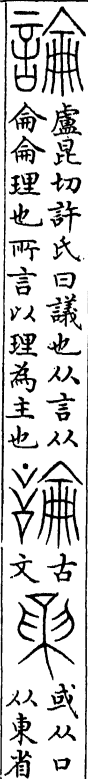 論
盧昆切許氏曰議也从言从
侖侖理也所言以理為主也
論
古
文
或从口
从東省